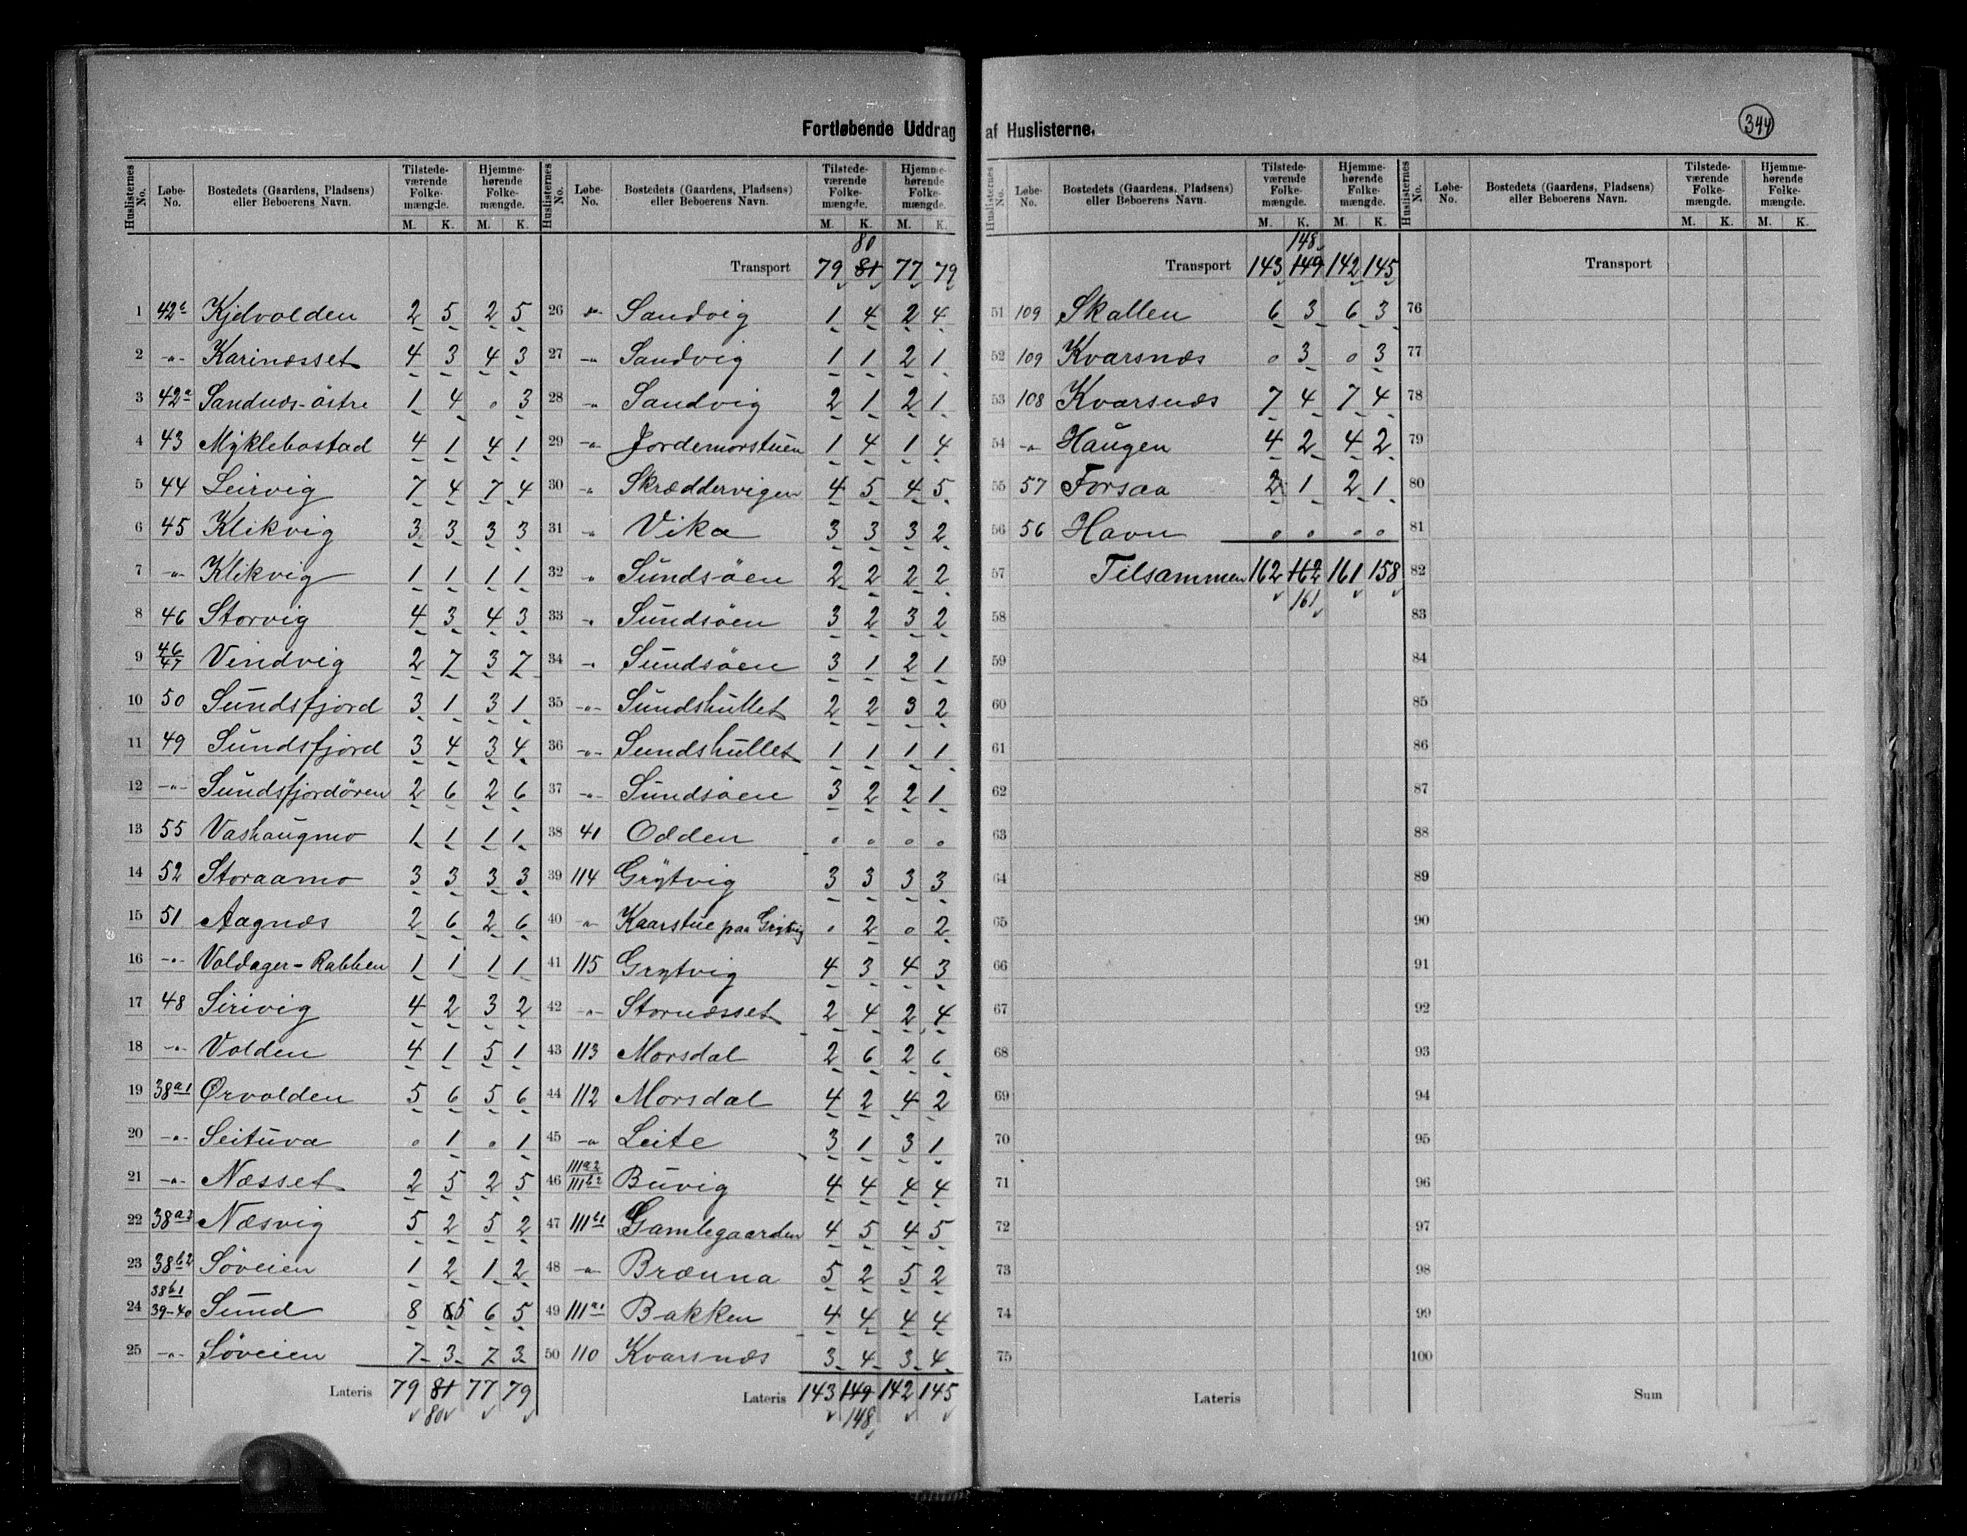 Fortløbende Uddrag af Huslisterne.
344
Huslisternes No. Løbe-No. Bostedets (Gaardens, Pladsens) eller Beboerens Navn. Tilstedeværende Folkemængde. M. K. Hjemmehørende Folkemængde. M. K.
1 42b Kjelvolden 2 5 2 5
2 -"- Karinæsset 4 3 4 3
3 42a Sandnæs-östre 1 4 0 3
4 43 Myklebostad 4 1 4 1
5 44 Leirvig 7 4 7 4
6 45 Klikvig 3 3 3 3
7 -"- Klikvig 1 1 1 1
8 46 Storvig 4 3 4 3
9 46/47 Vindvig 2 7 3 7
10 50 Sundsfjord 3 1 3 1
11 49 Sundsfjord 3 4 3 4
12 -"- Sundsfjordören 2 6 2 6
13 55 Vashaugmo 1 1 1 1
14 52 Storaamo 3 3 3 3
15 51 Aagnæs 2 6 2 6
16 -"- Voldager-Rabben 1 1 1 1
17 48 Sirivig 4 2 3 2
18 -"- Volden 4 1 5 1
19 38a1 Ørvolden 5 6 5 6
20 -"- Seituva 0 1 0 1
21 -"- Næsset 2 5 2 5
22 38a3 Næsvig 5 2 5 2
23 38b2 Søveien 1 2 1 2
24 38b1 39-40 Sund 8 5 6 5
25 -"- Søveien 7 3 7 3
Lateris 79 81 77 79
80
Huslisternes No. Løbe-No. Bostedets (Gaardens, Pladsens) eller Beboerens Navn. Tilstedeværende Folkemængde. M. K. Hjemmehørende Folkemængde. M. K.
80
Transport 79 81 77 79
26 -"- Sandvig 1 4 2 4
27 -"- Sandvig 1 1 2 1
28 -"- Sandvig 2 1 2 1
29 -"- Jordemorstuen 1 4 1 4
30 -"- Skræddervigen 4 5 4 5
31 -"- Vika 3 3 3 2
32 -"- Sundsöen 2 2 2 2
33 -"- Sundsöen 3 2 3 2
34 -"- Sundsöen 3 1 2 1
35 -"- Sundshullet 2 2 3 2
36 -"- Sundshullet 1 1 1 1
37 -"- Sundsöen 3 2 2 1
38 41 Odden 0 0 0 0
39 114 Grytvig 3 3 3 3
40 -"- Kaarstue paa Grytvig 0 2 0 2
41 115 Grytvig 4 3 4 3
42 -"- Stornæsset 2 4 2 4
43 113 Morsdal 2 6 2 6
44 112 Morsdal 4 2 4 2
45 -"- Leite 3 1 3 1
46 111a2 111b2 Buvig 4 4 4 4
47 111b1 Gamlegaarden 4 5 4 5
48 -"- Brænna 5 2 5 2
49 111a1 Bakken 4 4 4 4
50 110 Kvarsnæs 3 4 3 4
Lateris 143 149 142 145
148
Huslisternes No. Løbe-No. Bostedets (Gaardens, Pladsens) eller Beboerens Navn. Tilstedeværende Folkemængde. M. K. Hjemmehørende Folkemængde. M. K.
148
Transport 143 149 142 145
51 109 Skallen 6 3 6 3
52 109 Kvarsnæs 0 3 0 3
53 108 Kvarsnæs 7 4 7 4
54 -"- Haugen 4 2 4 2
55 57 Forsaa 2 1 2 1
56 56 Havn 0 0 0 0
57 Tilsammen 162 162 161 158
58 161
59
60
61
62
63
64
65
66
67
68
69
70
71
72
73
74
75
Lateris
Huslisternes No. Løbe-No. Bostedets (Gaardens, Pladsens) eller Beboerens Navn. Tilstedeværende Folkemængde. M. K. Hjemmehørende Folkemængde. M. K.
Transport
76
77
78
79
80
81
82
83
84
85
86
87
88
89
90
91
92
93
94
95
96
97
98
99
100
Sum